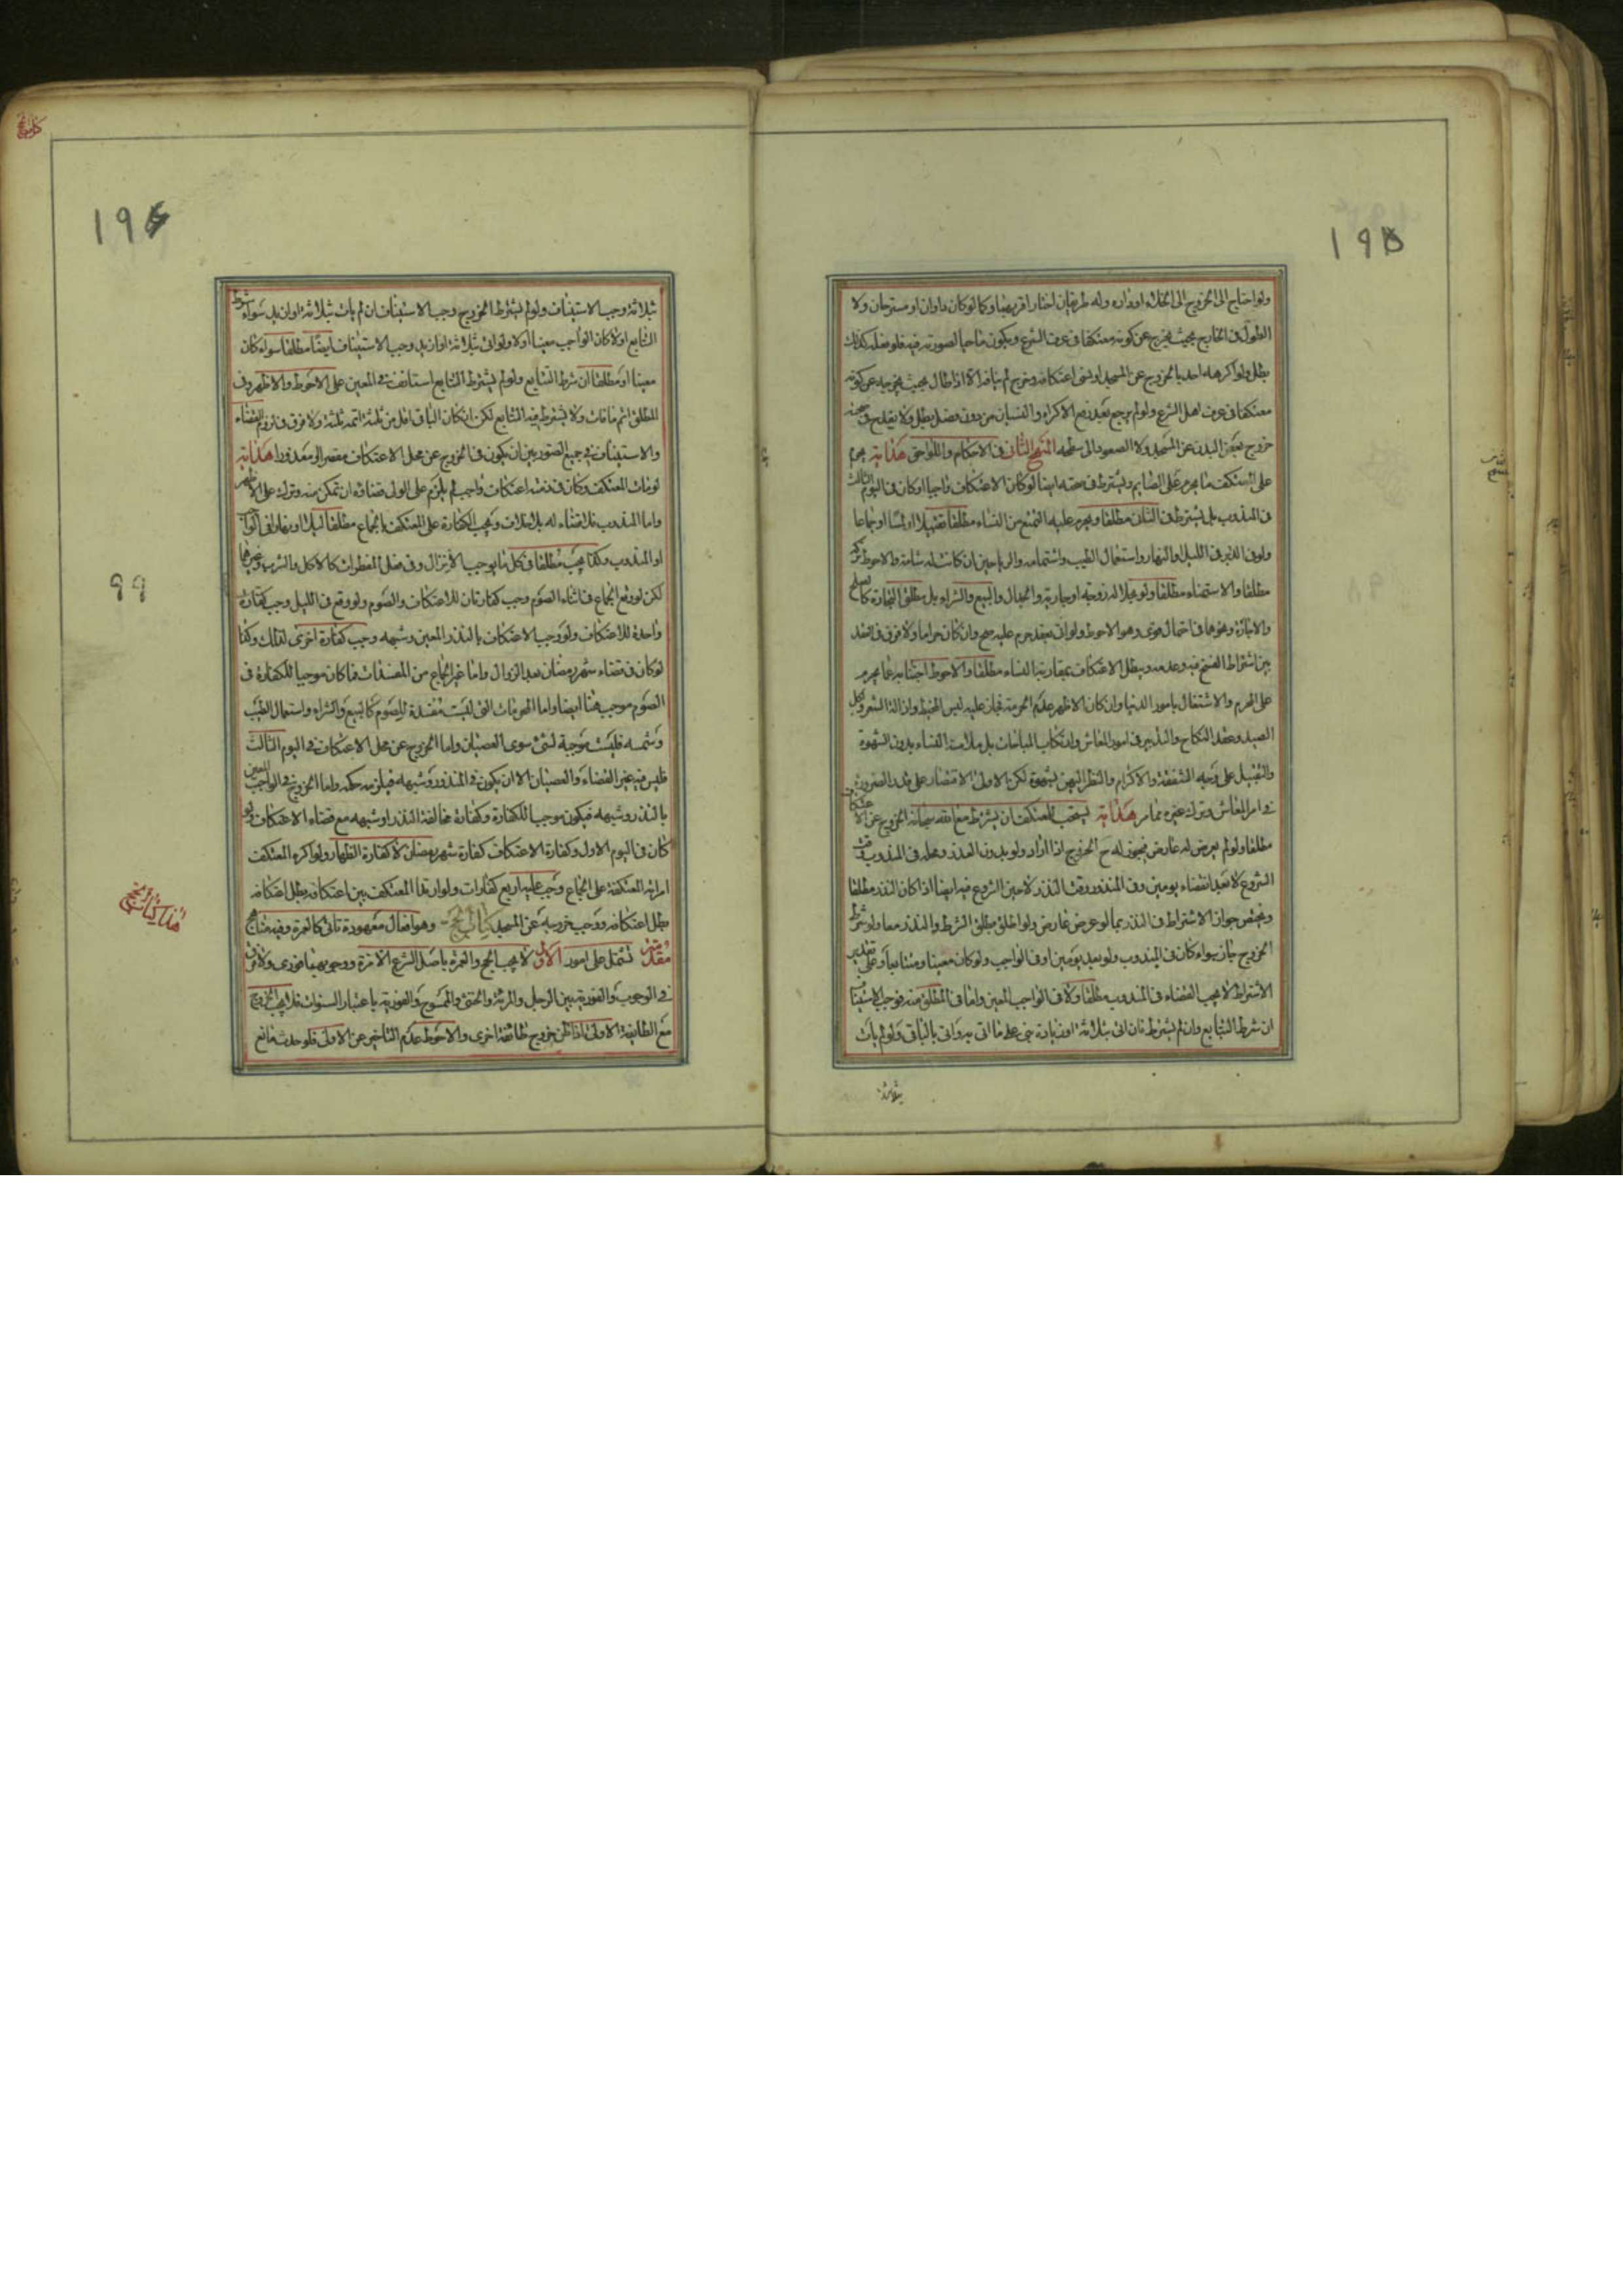 195
ولو احتاج الى الخروج الى الخلاء او داره وله طريقان اختار اقربهما وكذا لو كان داوان او مستراحان ولا
الطول فى الخارج بحيث يخرج عن كونه معتكفا فى عرف الشرع ويكون ماحيا لصورته فيه فلو فعل كذلك
بطل ولو اكرهه احد بالخروج عن المسجد او نسى اعتكافه وخرج لم يبافه الا اذا طال بحيث يخرجه عن كونه
معتكفا فى عرف اهل الشرع ولو لم يرجع بعد رفع الاكراه والنسيان من دون فصل بطل ولا يقدح فى صحته
خروج بعض البدن عن المسجد ولا الصعود الى سطحه المنهج الثانى فى الاحكام واللواحق هداية يحرم
على المعتكف ما يحرم على الصايم ويشترط فى حقه ايضا لو كان الاعتكاف واجبا او كان فى اليوم الثالث
فى المندوب بل يشترط فى الثلث مطلقا ويحرم عليه التمتع من النساء مطلقا تقبيلا او لمسا او جماعا
ولو فى الدبر فى الليل او النهار واستعمال الطيب واشتمامه والرياحين ان كانت له شامة والاحوط تركه
مطلقا والاستمناء مطلقا ولو بحلاله زوجته او جاريته والجدال والبيع والشراء بل مطلق التجارة كالصلح
والاجازة ونحوها فى احتمال قوى وهو الاحوط ولو اتى بعقد حرم عليه صح وان كان حراما ولا فرق فى العقد
بين اشتراط الفسخ فيه وعدمه ويبطل الاعتكاف بمقاربة النساء مطلقا والاحوط اجتنابه عما يحرم
على المحرم والاشتغال بامور الدنيا وان كان الاظهر عدم الحرمة فبان عليه لبس المخيط وازالة الشعر واكل
الصيد وعقد النكاح والتدبير فى امور المعاش وارتكاب المباحات بل ملامسة النساء بدون الشهوة
والتقبيل على وجه الشفقة والاكرام والنظر اليهن بشهوة لكن الاولى الاقتصار على قدر الضرورة
فى امر المعاش وترك غيره مما مر هداية يستحب للمعتكف ان يشترط مع الله سبحانه الخروج عن الاعتكاف
مطلقا ولو لم يعرض له عارض فيجوز له ح الخروج اذا اراد ولو بدون العذر ومحله فى المندوب وقت
الشروع لا بعد انقضاء يومين وفى المنذور وقت النذر لا حين الشروع فيه ايضا اذا كان النذر مطلقا
ويختص جواز الاشتراط فى النذر بما لو عرض عارض ولو اطلق مطلق الشرط والنذر معا ولو شرط
الخروج جاز سواء كان فى المندوب ولو بعد يومين او فى الواجب ولو كان معينا ومتتابعا وعلى تقدير
الاشتراط لا يجب القضاء فى المندوب مطلقا ولا فى الواجب المعين واما فى المطلق منه فوجب الاستيناف
ان شرط التتابع وان لم يشترط فان اتى بثلاثة او زيادة بنى على ما اتى به واتى بالباقى ولو لم يات
بثلاثة
كتاب الحج
196
99
بثلاثة وجب الاستيناف ولو لم يشترط الخروج وجب الاستيناف ان لم يات بثلاثة او ازيد سواء شرط
التتابع او لا كان الواجب معينا او لا ولو اتى بثلاثة او ازيد وجب الاستيناف ايضا مطلقا سواء كان
معينا او مطلقا ان شرط التتابع ولو لم يشترط التتابع استانف فى المعين على الاحوط والاظهر وفى
المطلق اتم ما فات ولا يشترط فيه التتابع لكن ان كان الباقى اقل من ثلثة اتمه ثلثة ولا فرق فى لزوم القضاء
والاستيناف فى جميع الصور بين ان يكون فى الخروج عن محل الاعتكاف مقصرا او معذورا هداية
لو مات المعتكف وكان فى ذمته اعتكاف واجب لم يلزم على الولى قضاؤه ان تمكن منه وترك على الاظهر
واما المندوب فلا قضاء له بلا خلاف وتجب الكفارة على المعتكف بالجماع مطلقا ليلا او نهارا فى الواجب
او المندوب وكذا يجب مطلقا فى كل ما يوجب الانزال وفى فعل المفطرات كالاكل والشرب وغيرهما
لكن لو وقع الجماع فى اثناء الصوم وجب كفارتان للاعتكاف والصوم ولو وقع فى الليل وجب كفارة
واحدة للاعتكاف ولو وجب الاعتكاف بالنذر المعين وشبهه وجب كفارة اخرى لذلك وكذا
لو كان فى قضاء شهر رمضان بعد الزوال واما غير الجماع من المفسدات فما كان موجبا للكفارة فى
الصوم موجب هنا ايضا واما المحرمات التى ليست مفسدة للصوم كالبيع والشراء واستعمال الطيب
وشمه فليست موجبة لشئ سوى العصيان واما الخروج عن محل الاعتكاف فى اليوم الثالث
فليس فيه غير القضاء والعصيان الا ان يكون فى المنذور وشبهه فيلزمه حكمه واما الخروج فى الواجب المعين
بالنذر وشبهه فيكون موجبا للكفارة وكفارة مخالفة النذر او شبهه مع قضاء الاعتكاف ولو
كان فى اليوم الاول وكفارة الاعتكاف كفارة شهر رمضان لا كفارة الظهار ولو اكره المعتكف
امراته المعتكفة على الجماع وجب عليه اربع كفارات ولو ارتد المعتكف بين اعتكافه يبطل اعتكافه
بطل اعتكافه ووجب خروجه عن المسجد كتاب الحج وهو افعال معهودة تاتى كالعمرة وفيه مناهج
مقدمة تشتمل على امور الاول لا يجب الحج والعمرة باصل الشرع الا مرة ووجوبهما فورى ولا فرق
فى الوجوب والفورية بين الرجل والمرئة والخنثى والممسوح والفورية باعتبار السنوات فلا يجب الخروج
مع الطايفة الاولى اذا ظن خروج طائفة اخرى والاحوط عدم التاخير عن الاولى فلو حدث مانع
هذا كتاب الحج